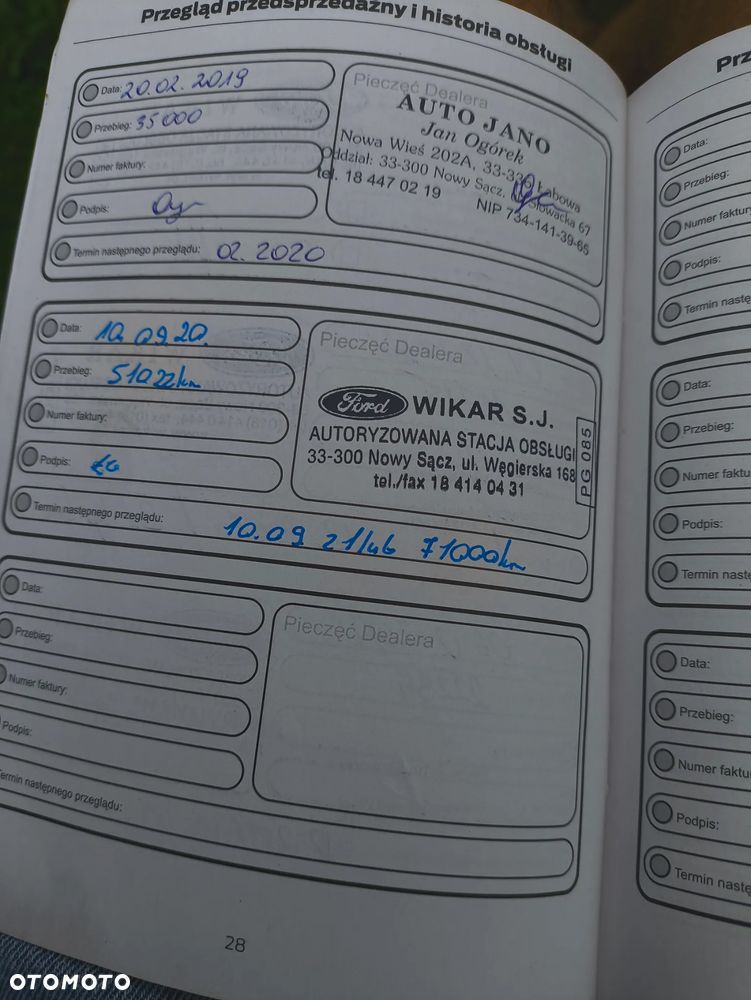 Przegląd przedsprzedażny i historia obsługi
Data: 20.02.2019
Przebieg: 35000
Numer faktury:
Podpis:
Termin następnego przeglądu: 02.2020
Pieczęć Dealera
AUTO JANO
Jan Ogórek
Nowa Wieś 202A, 33-336 Łabowa
Oddział: 33-300 Nowy Sącz, Słowacka 67
tel. 18 447 02 19 NIP 734-141-39-65
Data: 10.09.20.
Przebieg: 51022km
Numer faktury:
Podpis:
Termin następnego przeglądu: 10.09 21/lub 71000km
Pieczęć Dealera
Ford WIKAR S.J.
AUTORYZOWANA STACJA OBSŁUGI
33-300 Nowy Sącz, ul. Węgierska 168
tel./fax 18 414 04 31
PG 085
Data:
Przebieg:
Numer faktury:
Podpis:
Termin następnego przeglądu:
Pieczęć Dealera
28
Data:
Przebieg:
Numer faktury
Podpis:
Termin nastę
Data:
Przebieg:
Numer faktu
Podpis:
Termin nastę
Data:
Przebieg:
Numer faktu
Podpis:
Termin nastę
OTOMOTO